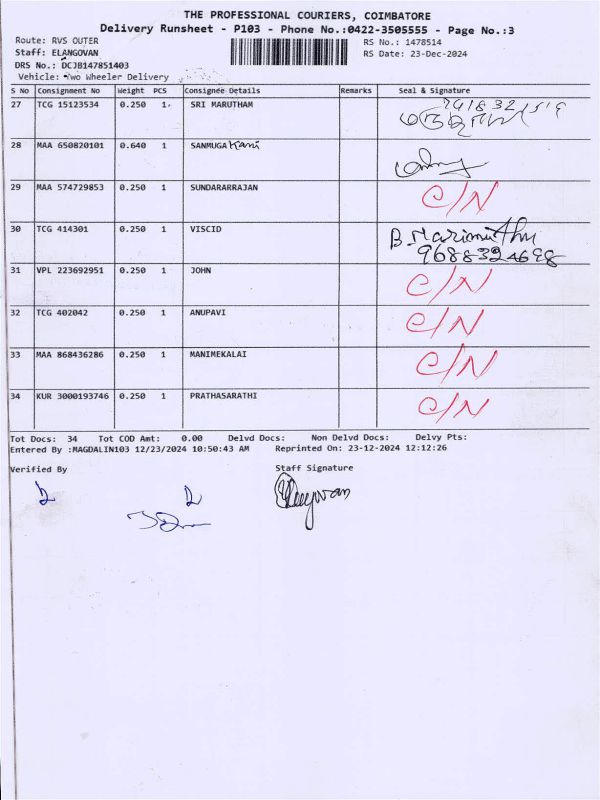 THE PROFESSIONAL COURIERS, COIMBATORE
Delivery Runsheet - P103 - Phone No.:0422-3505555 - Page No.:3
Route: RVS OUTER
RS No.: 1478514
Staff: ELANGOVAN
RS Date: 23-Dec-2024
DRS No.: DCJB147851403
Vehicle: Two Wheeler Delivery
S No Consignment No Weight PCS Consignee Details Remarks Seal & Signature
27 TCG 15123534 0.250 1 SRI MARUTHAM
28 MAA 650820101 0.640 1 SANMUGA Kani
29 MAA 574729853 0.250 1 SUNDARARRAJAN C/N
30 TCG 414301 0.250 1 VISCID B. Marimuthu
9688324698
31 VPL 223692951 0.250 1 JOHN C/N
32 TCG 402042 0.250 1 ANUPAVI C/N
33 MAA 868436286 0.250 1 MANIMEKALAI C/N
34 KUR 3000193746 0.250 1 PRATHASARATHI C/N
Tot Docs: 34 Tot COD Amt: 0.00 Delvd Docs: Non Delvd Docs: Delvy Pts:
Entered By :MAGDALIN103 12/23/2024 10:50:43 AM Reprinted On: 23-12-2024 12:12:26
Verified By
Staff Signature